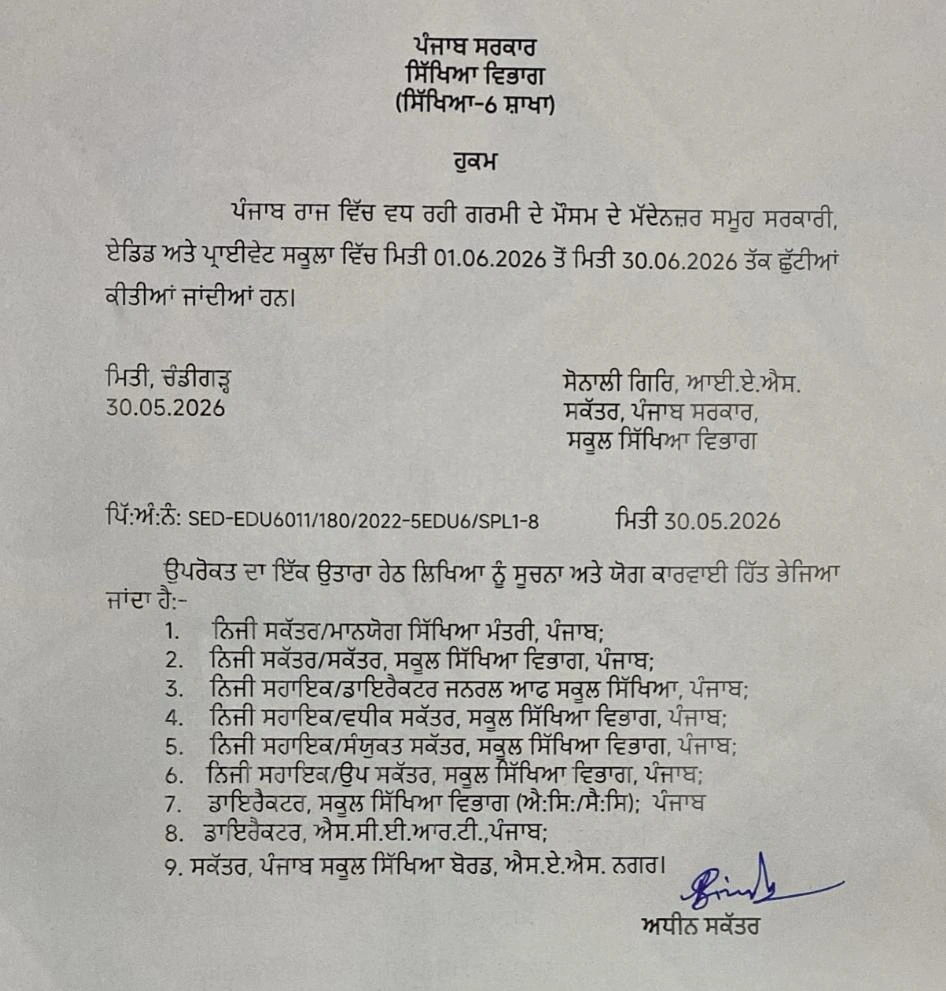 ਪੰਜਾਬ ਸਰਕਾਰ
ਸਿੱਖਿਆ ਵਿਭਾਗ
(ਸਿੱਖਿਆ-6 ਸ਼ਾਖਾ)
ਹੁਕਮ
ਪੰਜਾਬ ਰਾਜ ਵਿੱਚ ਵਧ ਰਹੀ ਗਰਮੀ ਦੇ ਮੌਸਮ ਦੇ ਮੱਦੇਨਜ਼ਰ ਸਮੂਹ ਸਰਕਾਰੀ,
ਏਡਿਡ ਅਤੇ ਪ੍ਰਾਈਵੇਟ ਸਕੂਲਾ ਵਿੱਚ ਮਿਤੀ 01.06.2026 ਤੋਂ ਮਿਤੀ 30.06.2026 ਤੱਕ ਛੁੱਟੀਆਂ
ਕੀਤੀਆਂ ਜਾਂਦੀਆਂ ਹਨ।
ਮਿਤੀ, ਚੰਡੀਗੜ੍ਹ
30.05.2026
ਸੋਨਾਲੀ ਗਿਰਿ, ਆਈ.ਏ.ਐਸ.
ਸਕੱਤਰ, ਪੰਜਾਬ ਸਰਕਾਰ,
ਸਕੂਲ ਸਿੱਖਿਆ ਵਿਭਾਗ
ਪਿੱ:ਅੰ:ਨੰ: SED-EDU6011/180/2022-5EDU6/SPL1-8 ਮਿਤੀ 30.05.2026
ਉਪਰੋਕਤ ਦਾ ਇੱਕ ਉਤਾਰਾ ਹੇਠ ਲਿਖਿਆ ਨੂੰ ਸੂਚਨਾ ਅਤੇ ਯੋਗ ਕਾਰਵਾਈ ਹਿੱਤ ਭੇਜਿਆ
ਜਾਂਦਾ ਹੈ:-
1. ਨਿਜੀ ਸਕੱਤਰ/ਮਾਨਯੋਗ ਸਿੱਖਿਆ ਮੰਤਰੀ, ਪੰਜਾਬ;
2. ਨਿਜੀ ਸਕੱਤਰ/ਸਕੱਤਰ, ਸਕੂਲ ਸਿੱਖਿਆ ਵਿਭਾਗ, ਪੰਜਾਬ;
3. ਨਿਜੀ ਸਹਾਇਕ/ਡਾਇਰੈਕਟਰ ਜਨਰਲ ਆਫ ਸਕੂਲ ਸਿੱਖਿਆ, ਪੰਜਾਬ;
4. ਨਿਜੀ ਸਹਾਇਕ/ਵਧੀਕ ਸਕੱਤਰ, ਸਕੂਲ ਸਿੱਖਿਆ ਵਿਭਾਗ, ਪੰਜਾਬ;
5. ਨਿਜੀ ਸਹਾਇਕ/ਸੰਯੁਕਤ ਸਕੱਤਰ, ਸਕੂਲ ਸਿੱਖਿਆ ਵਿਭਾਗ, ਪੰਜਾਬ;
6. ਨਿਜੀ ਸਹਾਇਕ/ਉਪ ਸਕੱਤਰ, ਸਕੂਲ ਸਿੱਖਿਆ ਵਿਭਾਗ, ਪੰਜਾਬ;
7. ਡਾਇਰੈਕਟਰ, ਸਕੂਲ ਸਿੱਖਿਆ ਵਿਭਾਗ (ਐ:ਸਿ:/ਸੈ:ਸਿ); ਪੰਜਾਬ
8. ਡਾਇਰੈਕਟਰ, ਐਸ.ਸੀ.ਈ.ਆਰ.ਟੀ.,ਪੰਜਾਬ;
9. ਸਕੱਤਰ, ਪੰਜਾਬ ਸਕੂਲ ਸਿੱਖਿਆ ਬੋਰਡ, ਐਸ.ਏ.ਐਸ. ਨਗਰ।
ਅਧੀਨ ਸਕੱਤਰ